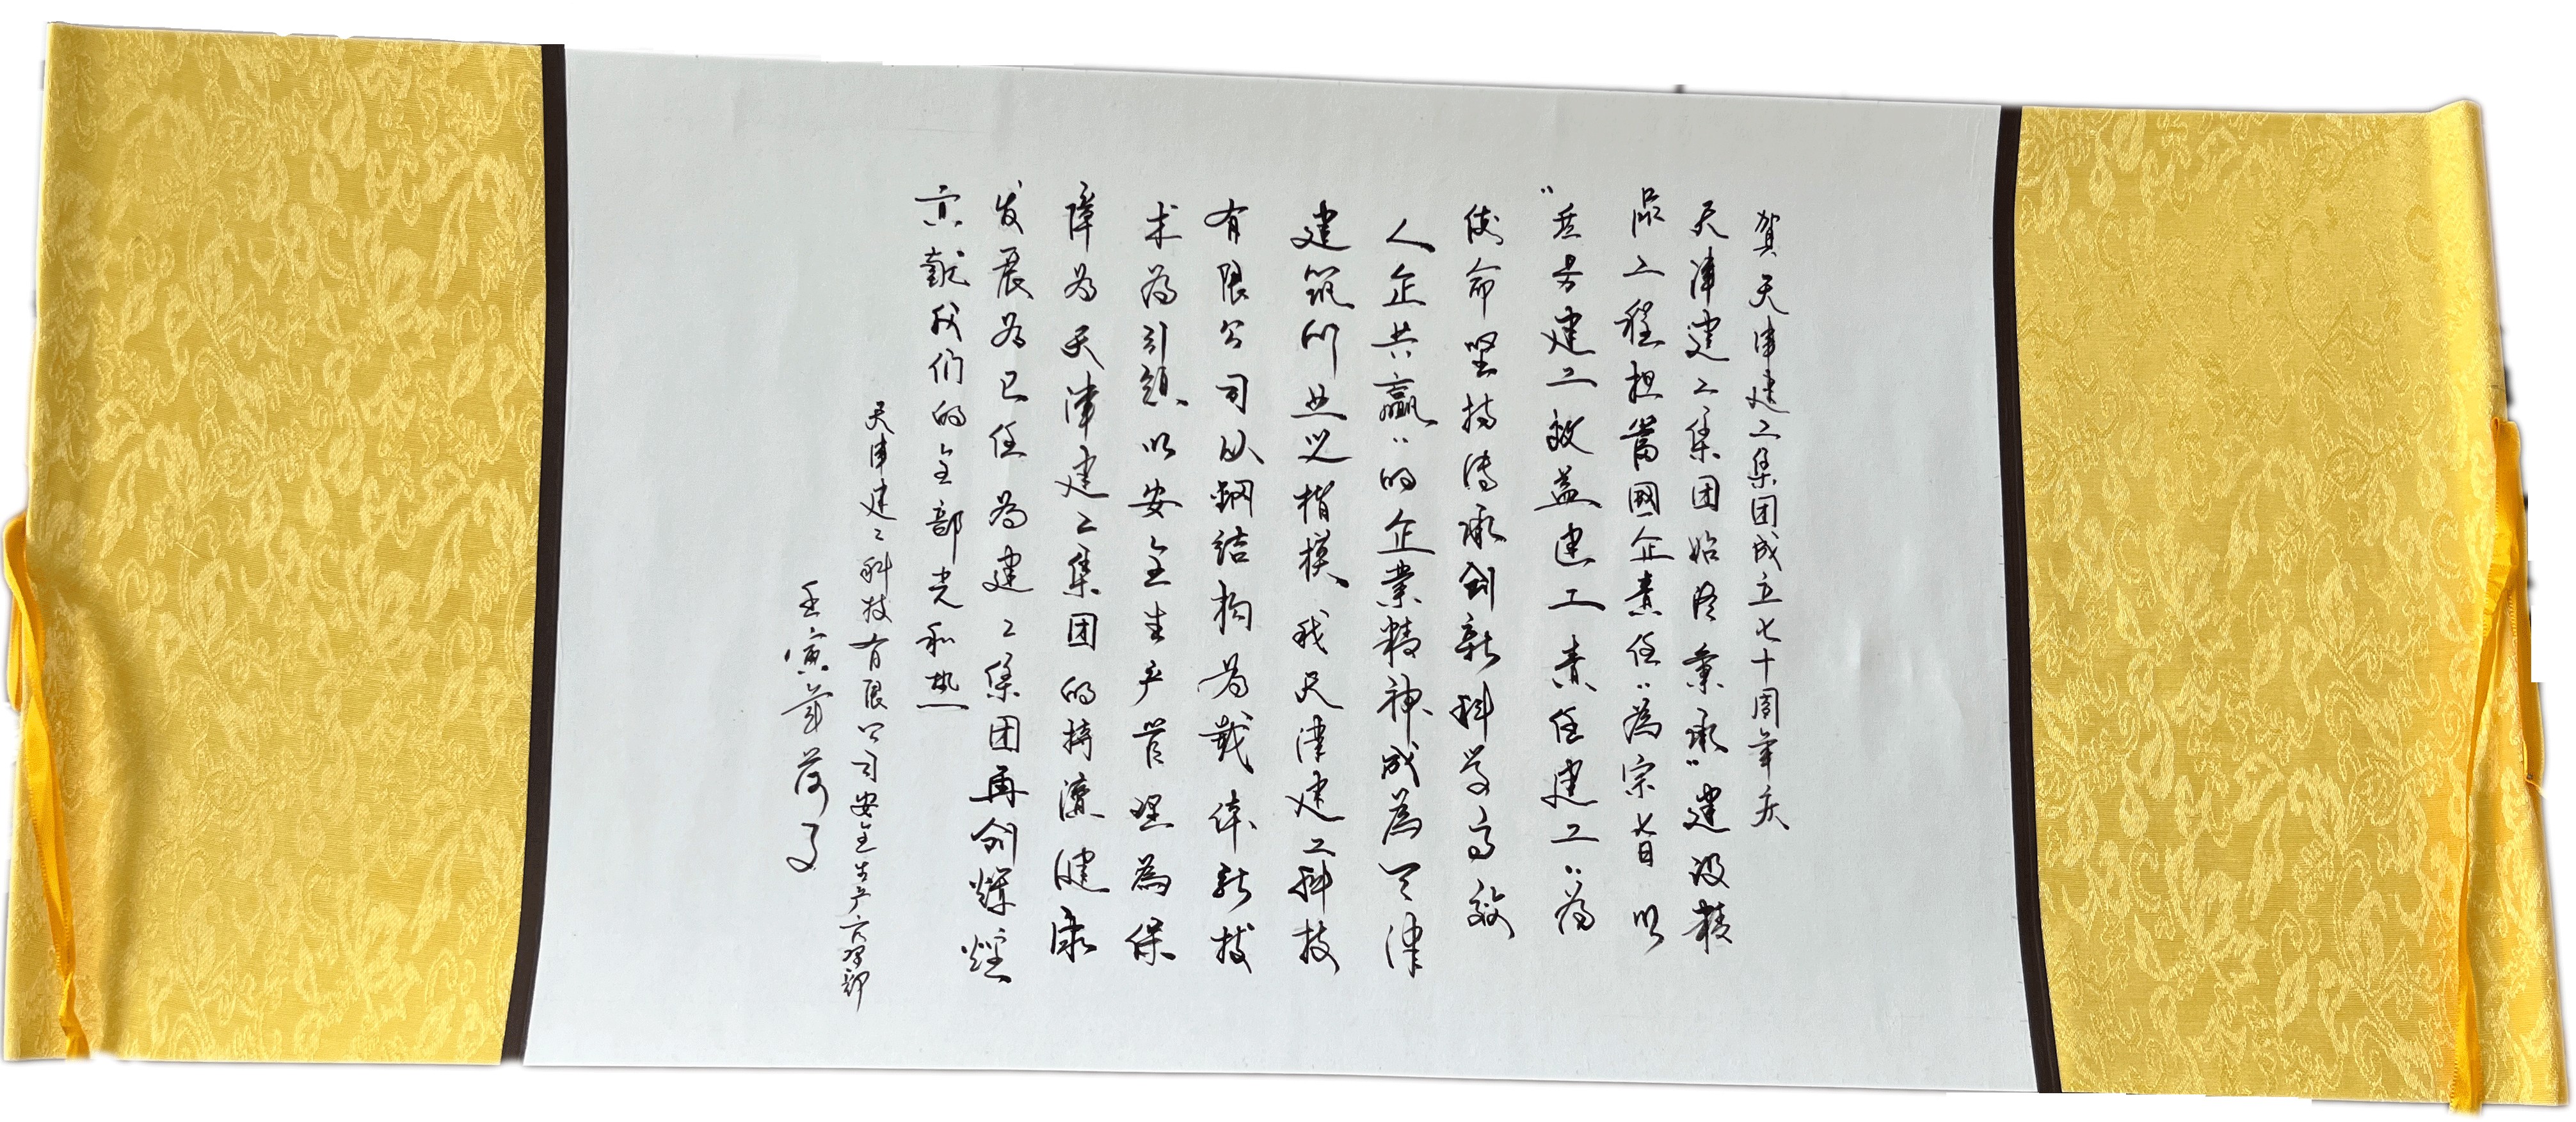 贺天津建工集团成立七十周年庆
天津建工集团始终秉承“建设精
品工程担當國企责任”為宗旨以
“品质建工效益建工责任建工”為
使命坚持传承创新科学高效
人企共赢”的企業精神成為天津
建筑行业之楷模、我天津建工科技
有限公司以钢结构为载体新技
术為引领、以安全生产管理為保
障为天津建工集团的持续健康
发展为己任为建工集团再创辉煌
贡献我们的全部光和热
天津建工科技有限公司安全生产管理部
壬寅年荷月